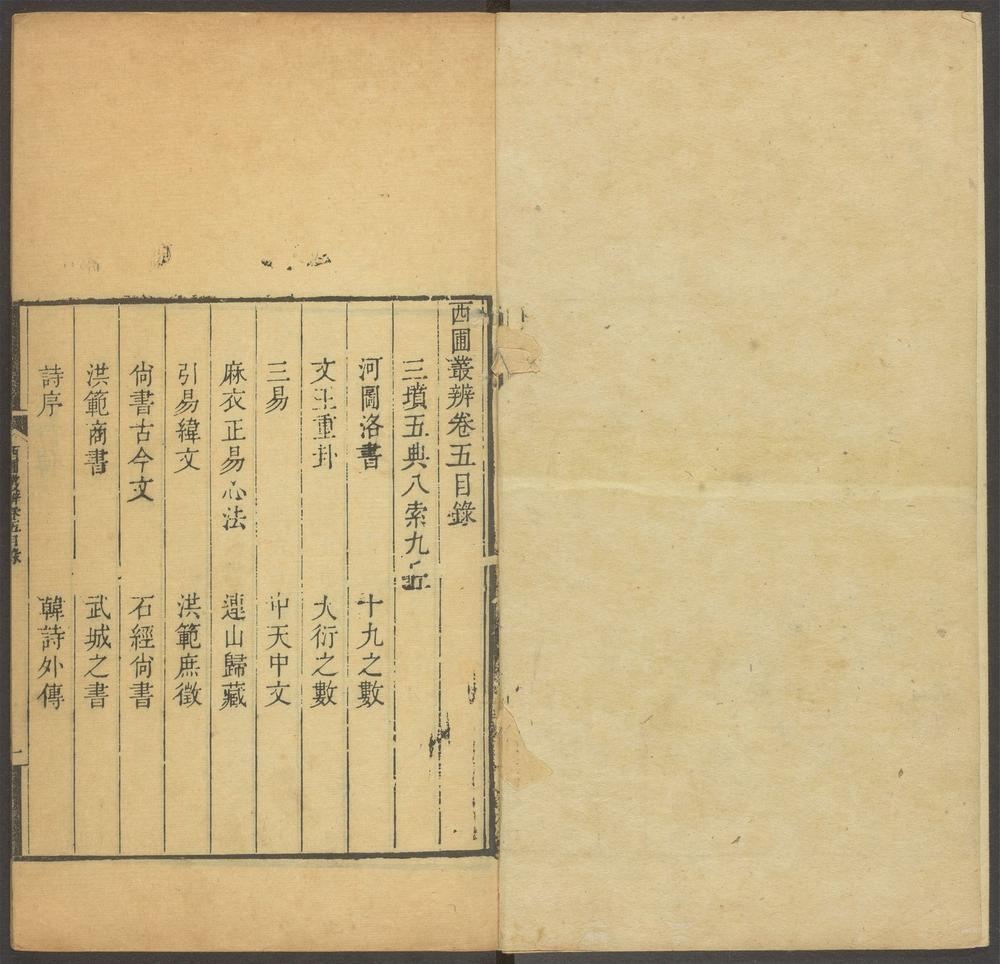 西圃叢辨卷五目錄
三墳五典八索九丘
河圖洛書　十九之數
文王重卦　大衍之數
三易　中天中文
麻衣正易心法　連山歸藏
引易緯文　洪範庶徵
尙書古今文　石經尙書
洪範商書　武城之書
詩序　韓詩外傳
西圃叢辨卷五目錄
一